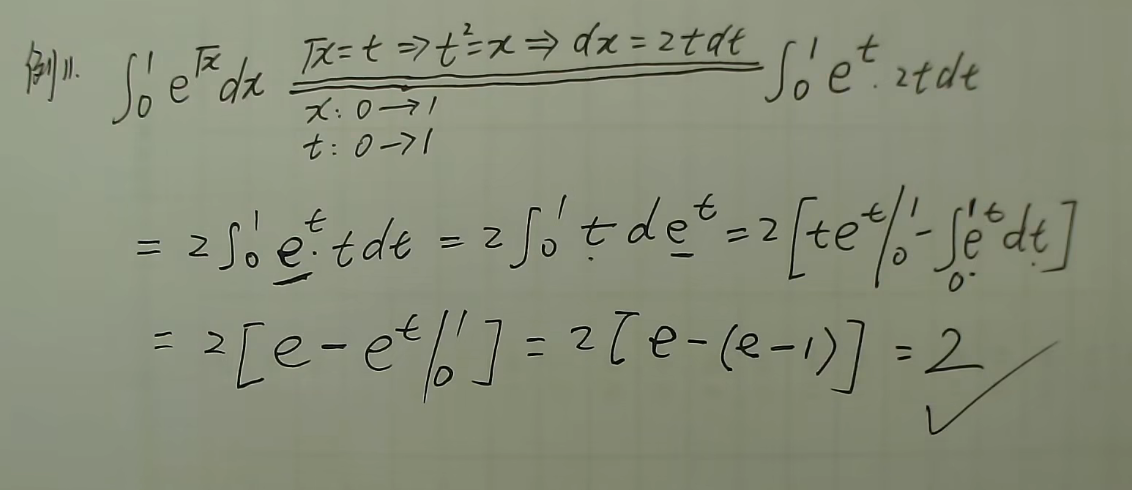 例11. ∫₀¹ e^√x dx √x = t ⇒ t² = x ⇒ dx = 2tdt ∫₀¹ e^t · 2tdt
x: 0 → 1
t: 0 → 1
= 2∫₀¹ e^t · tdt = 2∫₀¹ t de^t = 2[te^t|₀¹ - ∫₀¹ e^t dt]
= 2[e - e^t|₀¹] = 2[e - (e - 1)] = 2 ✓